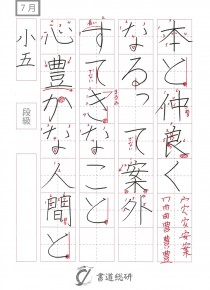 本と仲良く
なるって案外
すてきなこと
心豊かな人間と
7月
小五
段級
書道総研